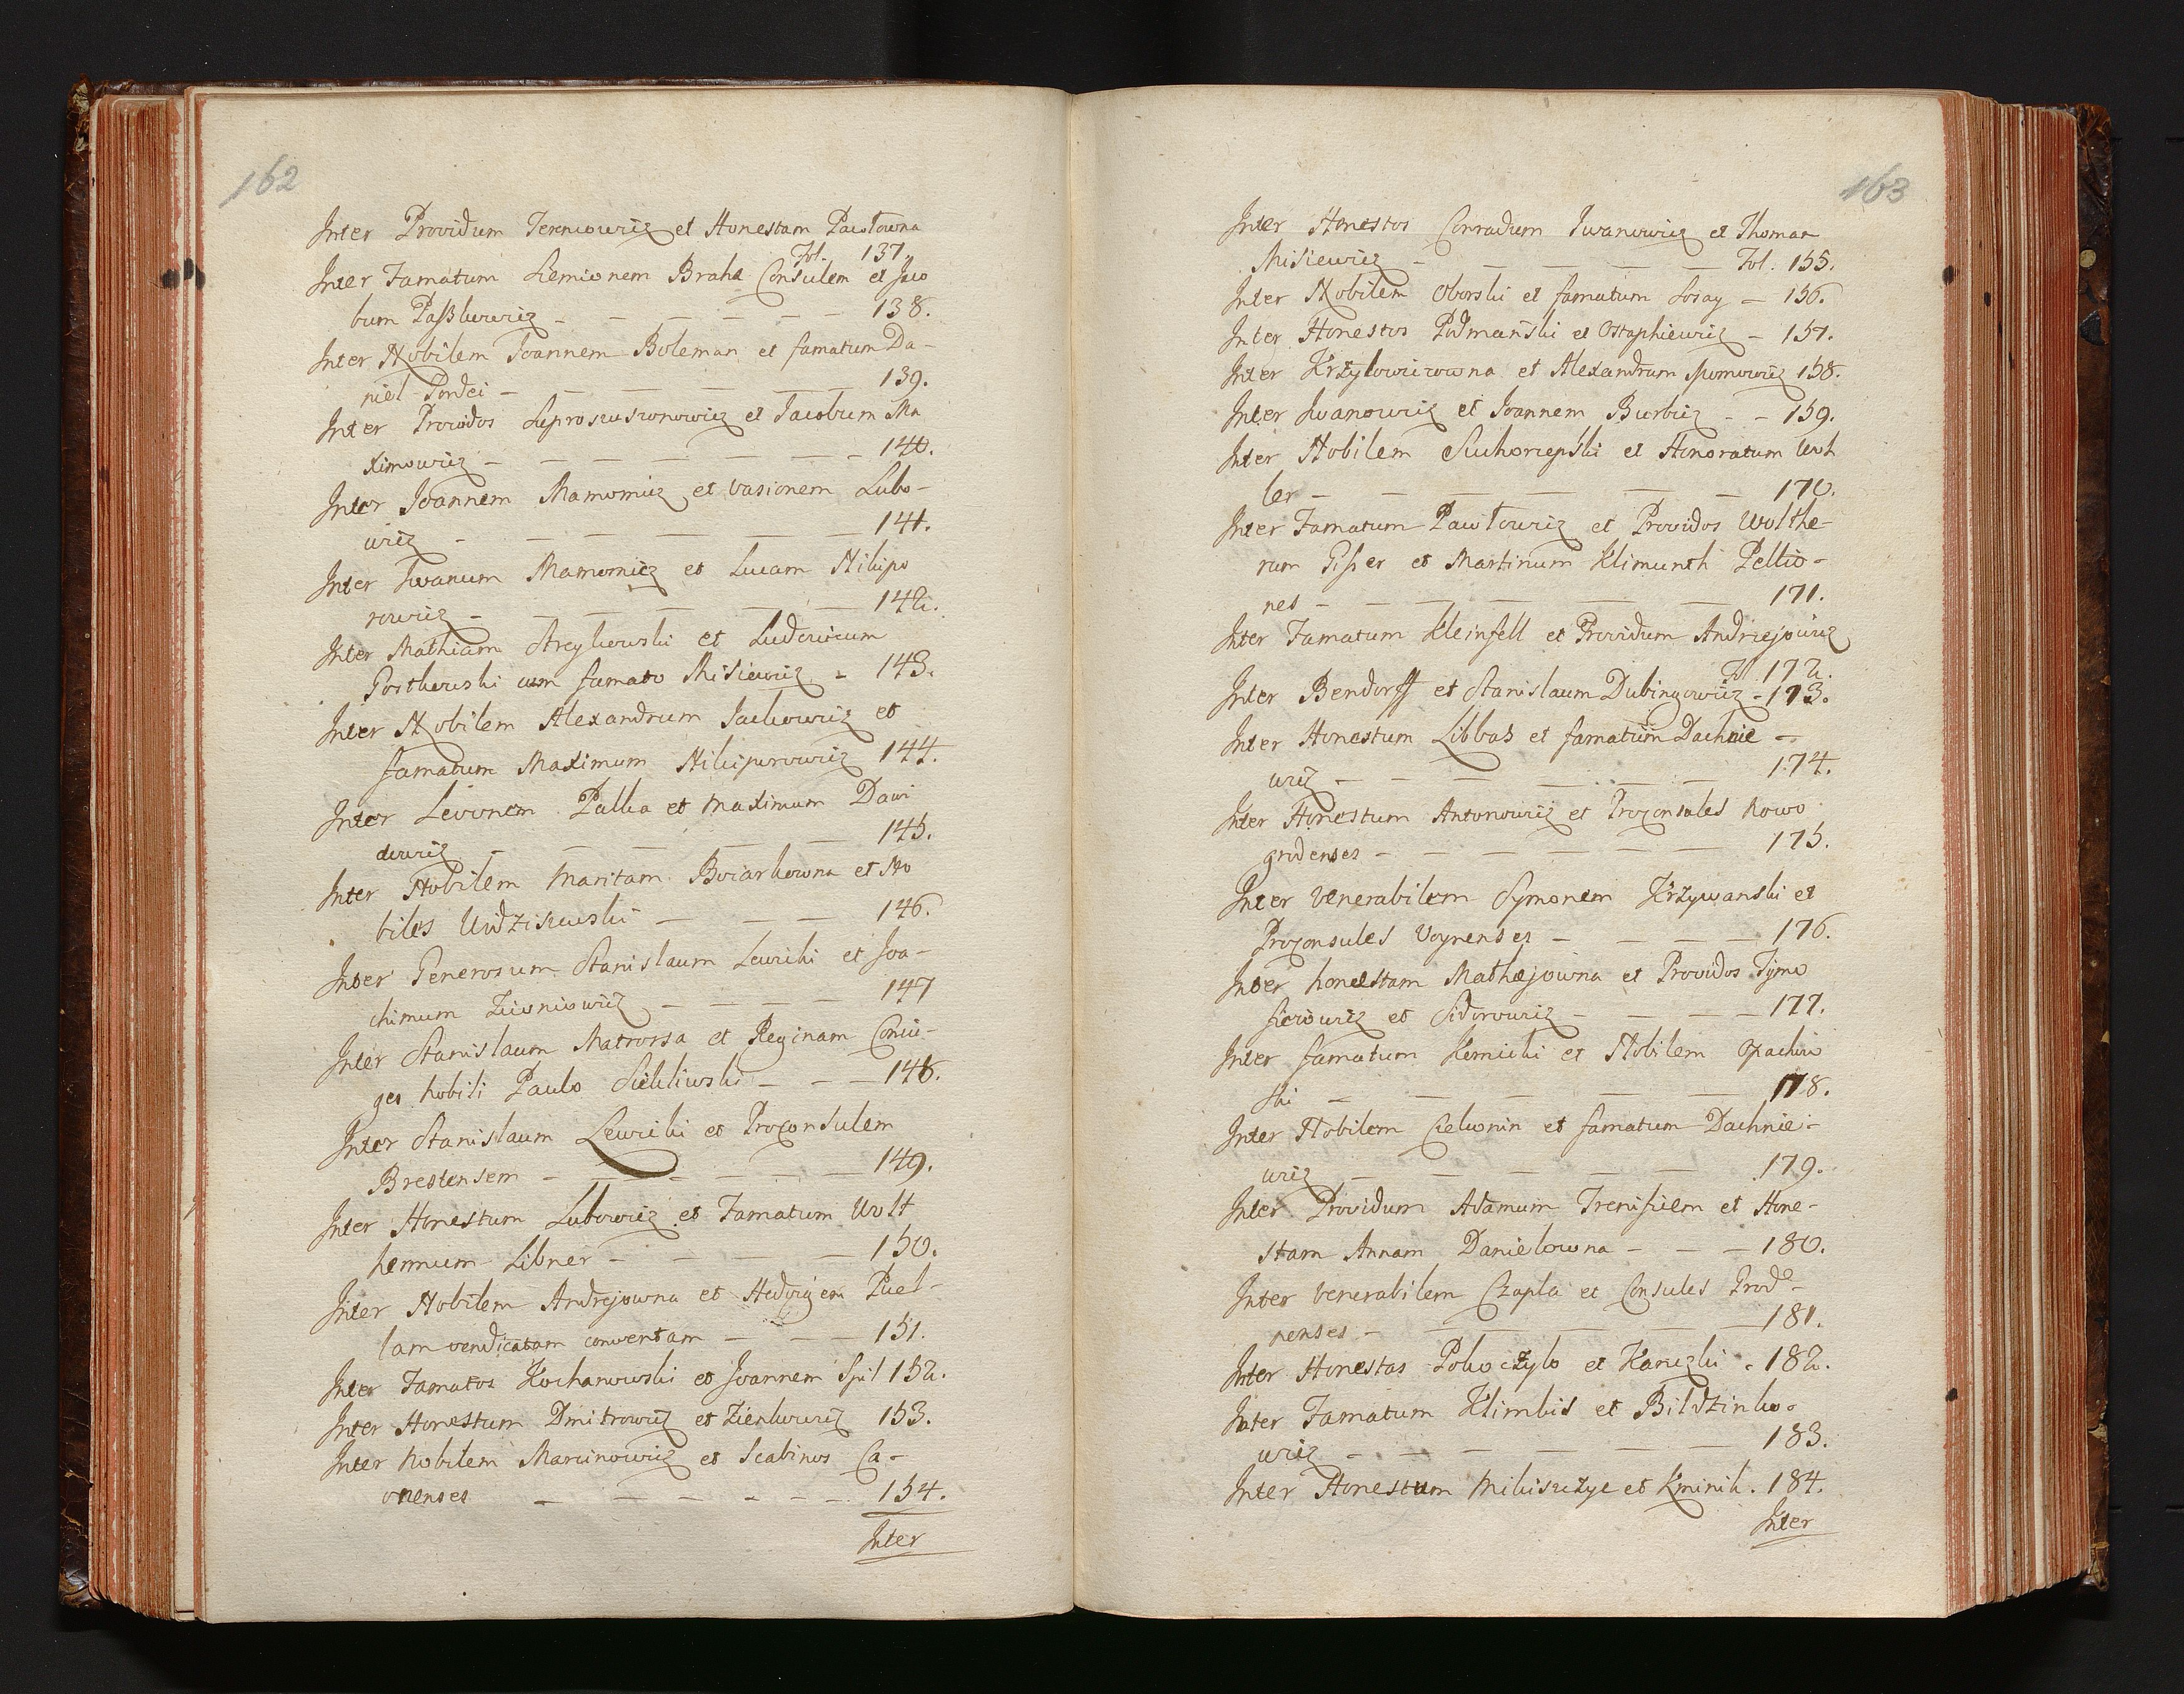 162
Inter Providum Jerniowicz et Honestam Pawłowna
Fol. 137.
Inter Famatum Siemionem Braha Consulem et Jaco
bum Paßkowicz - - - - - - 138.
Inter Nobilem Joannem Boleman et famatum Da-
niel Pordei - - - - - - 139.
Inter Providos et Jacobum Ma
ximowicz - - - - - - - 140.
Inter Joannem Mamonicz et Vasionem Lubo-
wicz - - - - - - - 141.
Inter Iwanum Mamonicz et Lucam Nikipo
rowicz - - - - - - 142.
Inter Mathiam Streykowski et Ludovicum
Gostkowski cum famato Misiewicz - 143.
Inter Nobilem Alexandrum Jackowicz et
famatum Maximum Nikiporowicz 144.
Inter Levonem Palka et Maximum Dawi
dowicz - - - - - - 145.
Inter Nobilem Maritam Boiarkowna et No
biles Udziszewski - - - 146.
Inter Generosum Stanislaum Lewicki et Joa-
chimum Zioniowicz - - - - 147
Inter Stanislaum Matrossa et Reginam Coniu-
ges Nobili Paulo Sieklicwski - - - 148.
Inter Stanislaum Lewicki et Proconsulem
Brestensem - - - - - - 149.
Inter Honestum Lubowicz et Famatum Wolt
hermum Libner - - - - - 150.
Inter Nobilem Andrejowna et Hedvigem Puel-
lam vendicatam conventam - - - 151.
Inter Famatos Kochanowski et Joannem Spil 152.
Inter Honestum Dmitrowicz et Zienkowicz 153.
Inter Nobilem Marcinowicz et Scabinos Ca-
vnenses - - - - - - 154.
Inter
163
Inter Honestos Conradum Iwanowicz et Thomam
Misiewicz - - - - - - Fol. 155.
Inter Nobilem Oborski et famatum Sosay - 156.
Inter Honestos Podmański et Ostaphiewicz - 157.
Inter Krzyłowiczowna et Alexandrum 158.
Inter Iwanowicz et Joannem Burbicz - - 159.
Inter Nobilem Suchorzepski et Honoratum Woh
ler - - - - - - - 170.
Inter Famatum Pawłowicz et Providos Wolthe-
rum Gisser et Martinum Klimunth Pellio-
nes - - - - - - - 171.
Inter Famatum Kleinfell et Providum Andrzejowicz
Fol 172.
Inter Bendorff et Stanislaum Dubingowicz - 173.
Inter Honestum Libbas et famatum Dachnie -
wicz - - - - - - - 174.
Inter Honestum Antonowicz et Proconsules Nowo
grodenses - - - - - - - 175.
Inter Venerabilem Symonem Krzywanski et
Proconsules Voynenses - - - - - 176.
Inter honestam Mathejowna et Providos Tymo
fieiowicz et Sidorowicz - - - - 177.
Inter famatum Kemicki et Nobilem Opachow
ski - - - - - - 178.
Inter Nobilem Ciekonin et famatum Dachnie-
wicz - - - - - - 179.
Inter Providum Adamum Trenisiem et Hone-
stam Annam Danielowna - - - 180.
Inter Venerabilem Czapla et Consules Grod-
nenses - - - - - - 181.
Inter Honestas Pokoczylo et Kanczki - 182.
Inter Famatum Klimbis et Bildzinko-
wicz - - - - - - - 183.
Inter Honestum Mikiszczyc et Kminik. 184.
Inter